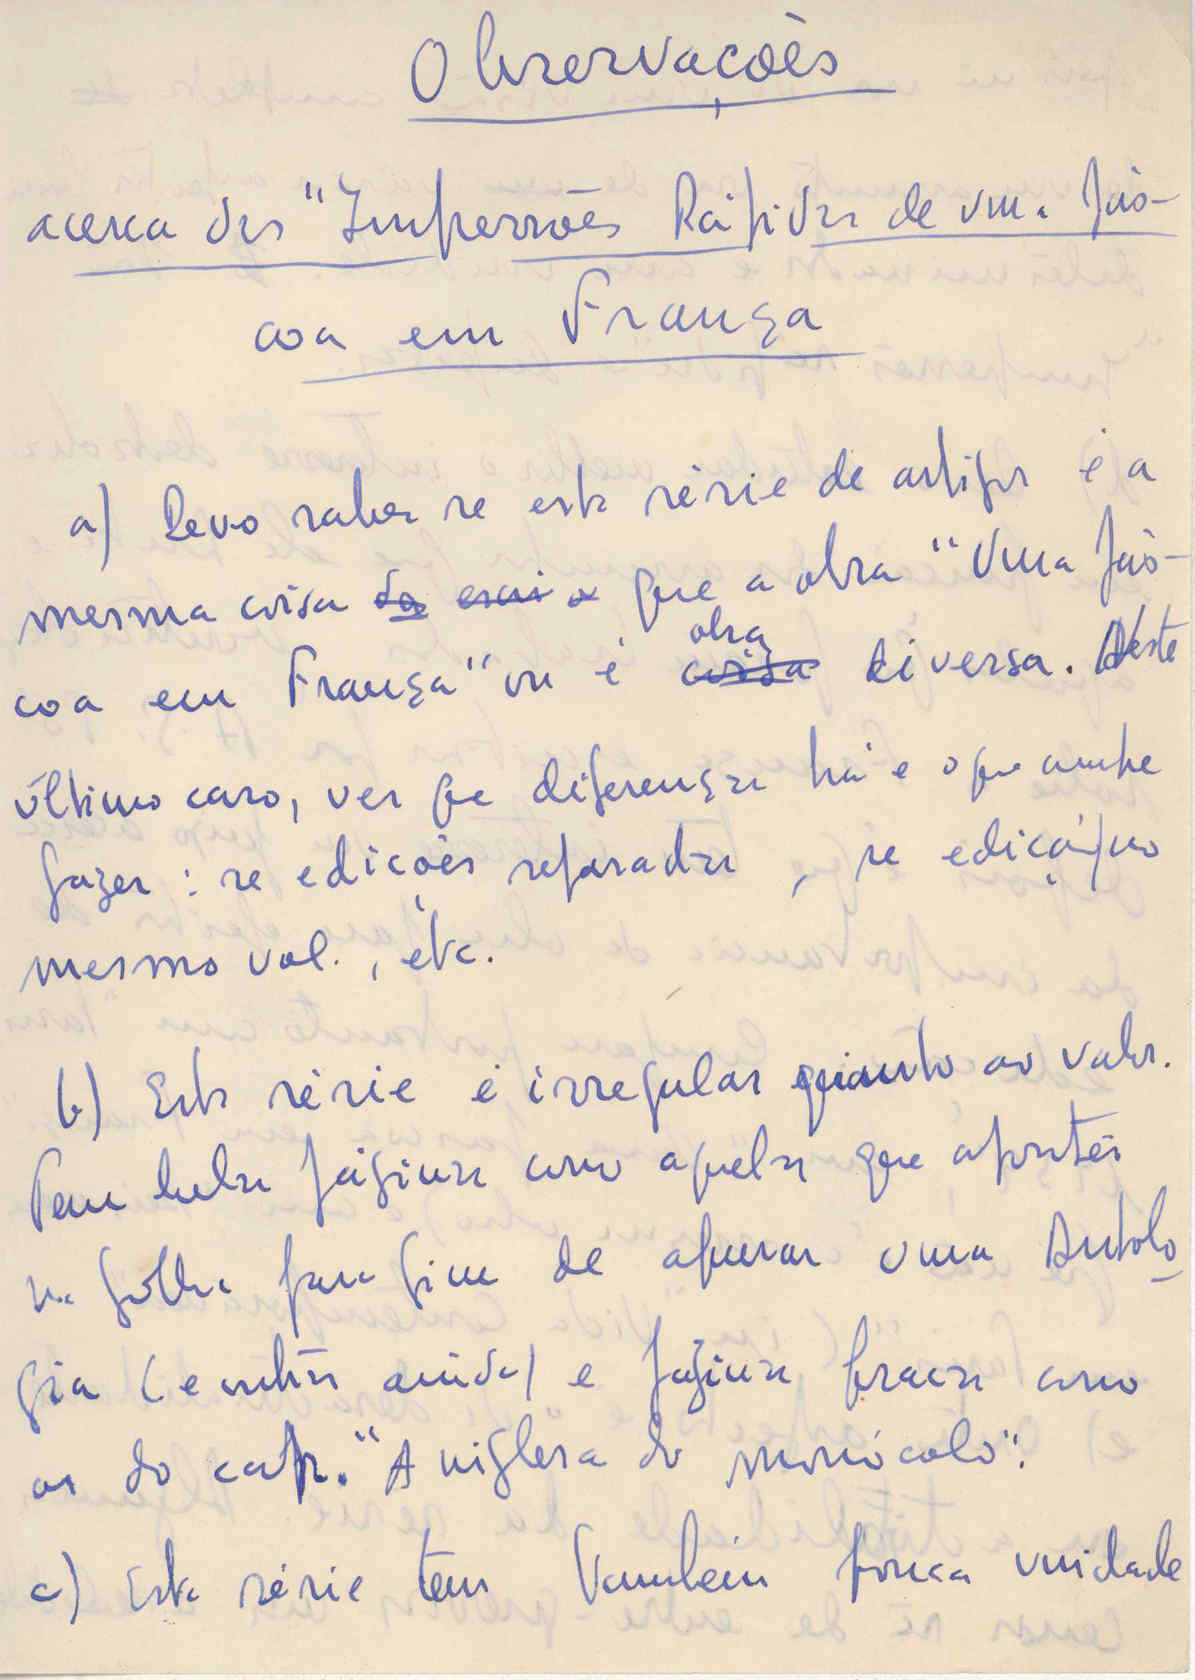 Observações
acerca das "Impressões Rápidas de uma Gôs-
coa em França
a) Devo saber se esta série de artigos é a
mesma coisa que a obra "Uma Gôs-
coa em França" ou é obra diversa. Neste
último caso, ver que diferenças há e o que cumpre
fazer: se edições separadas, se edição no
mesmo vol., etc.
b) Esta série é irregular quanto ao valor.
Tem belas páginas como aquelas que apontei
na folha para fim de apurar uma Antolo
gia (e outras ainda) e páginas fracas como
as do cap. "A inglesa do monóculo".
c) Esta série tem também pouca unidade